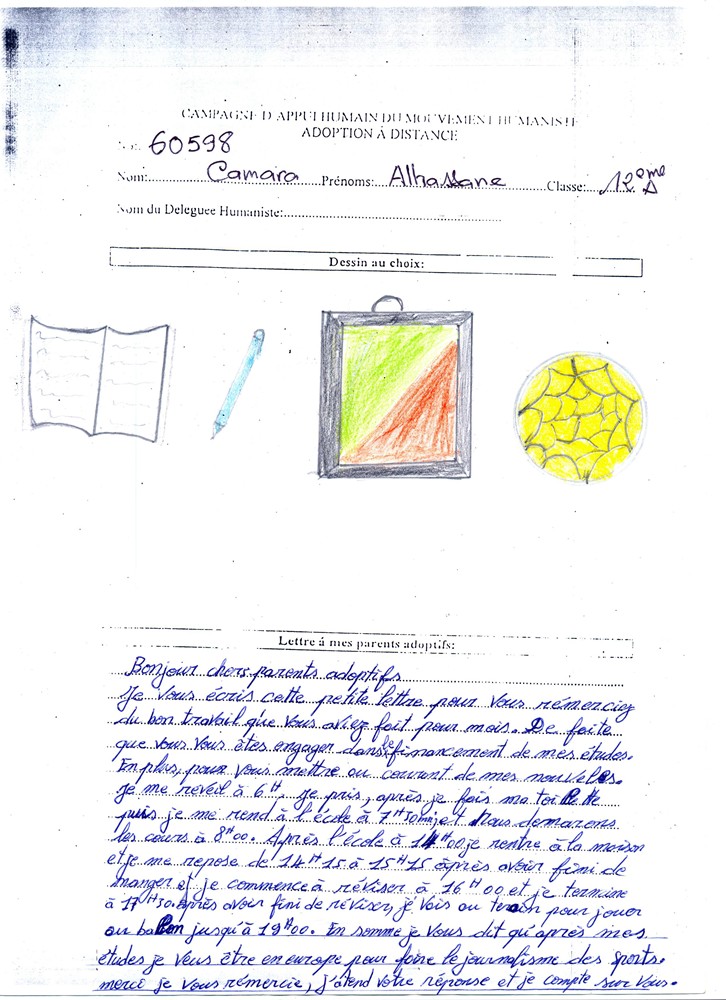 CAMPAGNE D'APPUI HUMAIN DU MOUVEMENT HUMANISTE
ADOPTION À DISTANCE
No: 60598
Nom: Camara Prénoms: Alhassane Classe: 12ème A
Nom du Deleguee Humaniste:
Dessin au choix:
Lettre á mes parents adoptifs:
Bonjour chers parents adoptifs
Je vous écris cette petite lettre pour vous rémerciez
du bon travail que vous aviez fait pour mois. De faite
que vous vous êtes engager dans le financement de mes études.
En plus, pour vous mettre au courent de mes nouvelles.
Je me reveil à 6H, je pris, après je fais ma toilette
puis je me rend à l'école à 7H30mn, et Nous demarons
les cours à 8H00. Après l'école à 14H00 je rentre à la maison
et je me repose de 14H15 à 15H15 àprès avoir fini de
manger et je commence à réviser à 16H00 et je termine
à 17H30. après avoir fini de réviser, je vais au terain pour jouer
au ballon jusqu'à 19H00. En somme je vous dit qu'après mes
études je veus être en europe pour faire le journalisme des sports.
merci je vous rémercie, j'atend votre réponse et je compte sur vous.